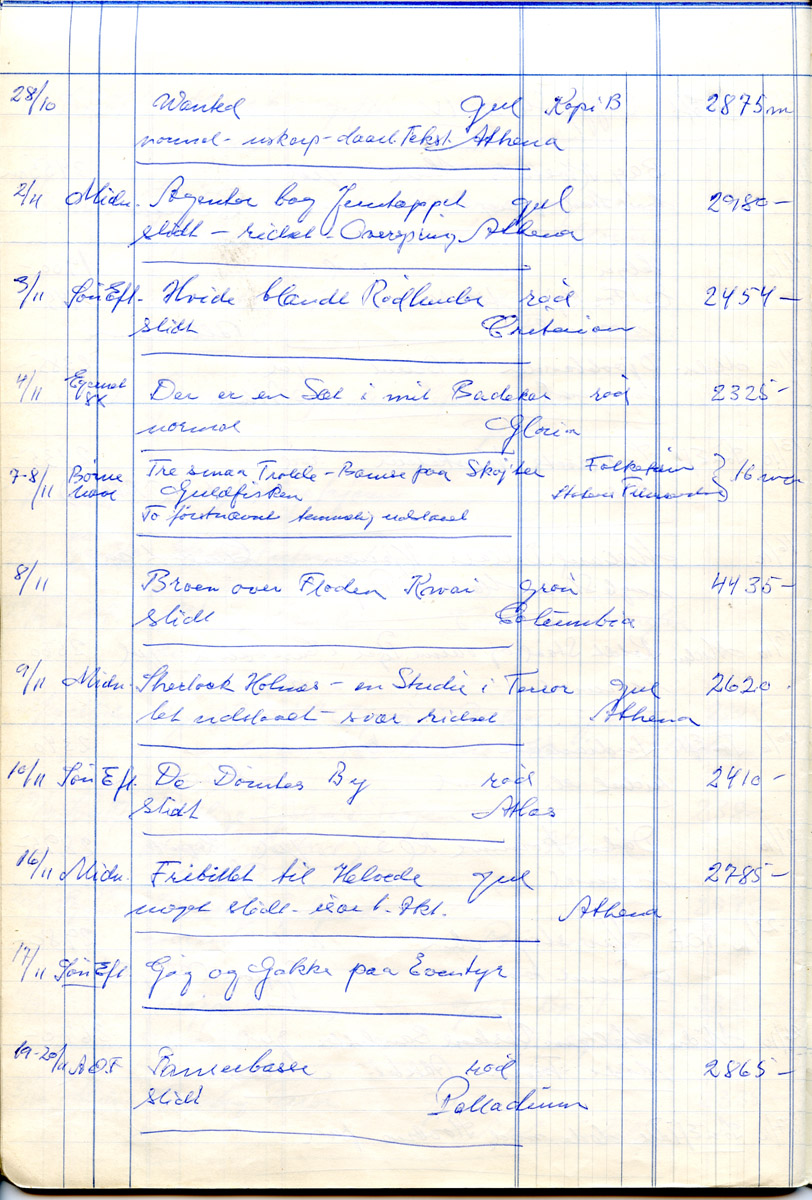 28/10 Wanted gul Kopi B 2875 m
normal - uskarp - daarl. Tekst. Athena
2/11 Midn. Agenter bag Jerntæppet gul 2980 -
slidt - ridset - Overspring Athena
3/11 Søn Eft. Hvide blandt Rødhuder rød 2454 -
slidt Criterion
4/11 Der er en Sæl i mit Badekar rød 2325 -
normal Gloria
7-8/11 Børne Tre smaa Trolde - Bamse paa Skøjter } 16 mm
Guldfisken Statens Filmcentral
To førstnævnte temmelig udslaaet
8/11 Broen over Floden Kwai grøn 4435 -
slidt Columbia
9/11 Midn. Sherlock Holmes - en Studie i Terror gul 2620 -
let udslaaet - svær ridset Athena
10/11 Søn Eft. De Dømtes By rød 2410 -
slidt Atlas
16/11 Midn. Fribillet til Helvede gul 2785 -
noget slidt - især 1. Akt. Athena
17/11 Søn Eft. Gøg og Gokke paa Eventyr
19-20/11 AOF Pansserbasse rød 2865 -
slidt Palladium